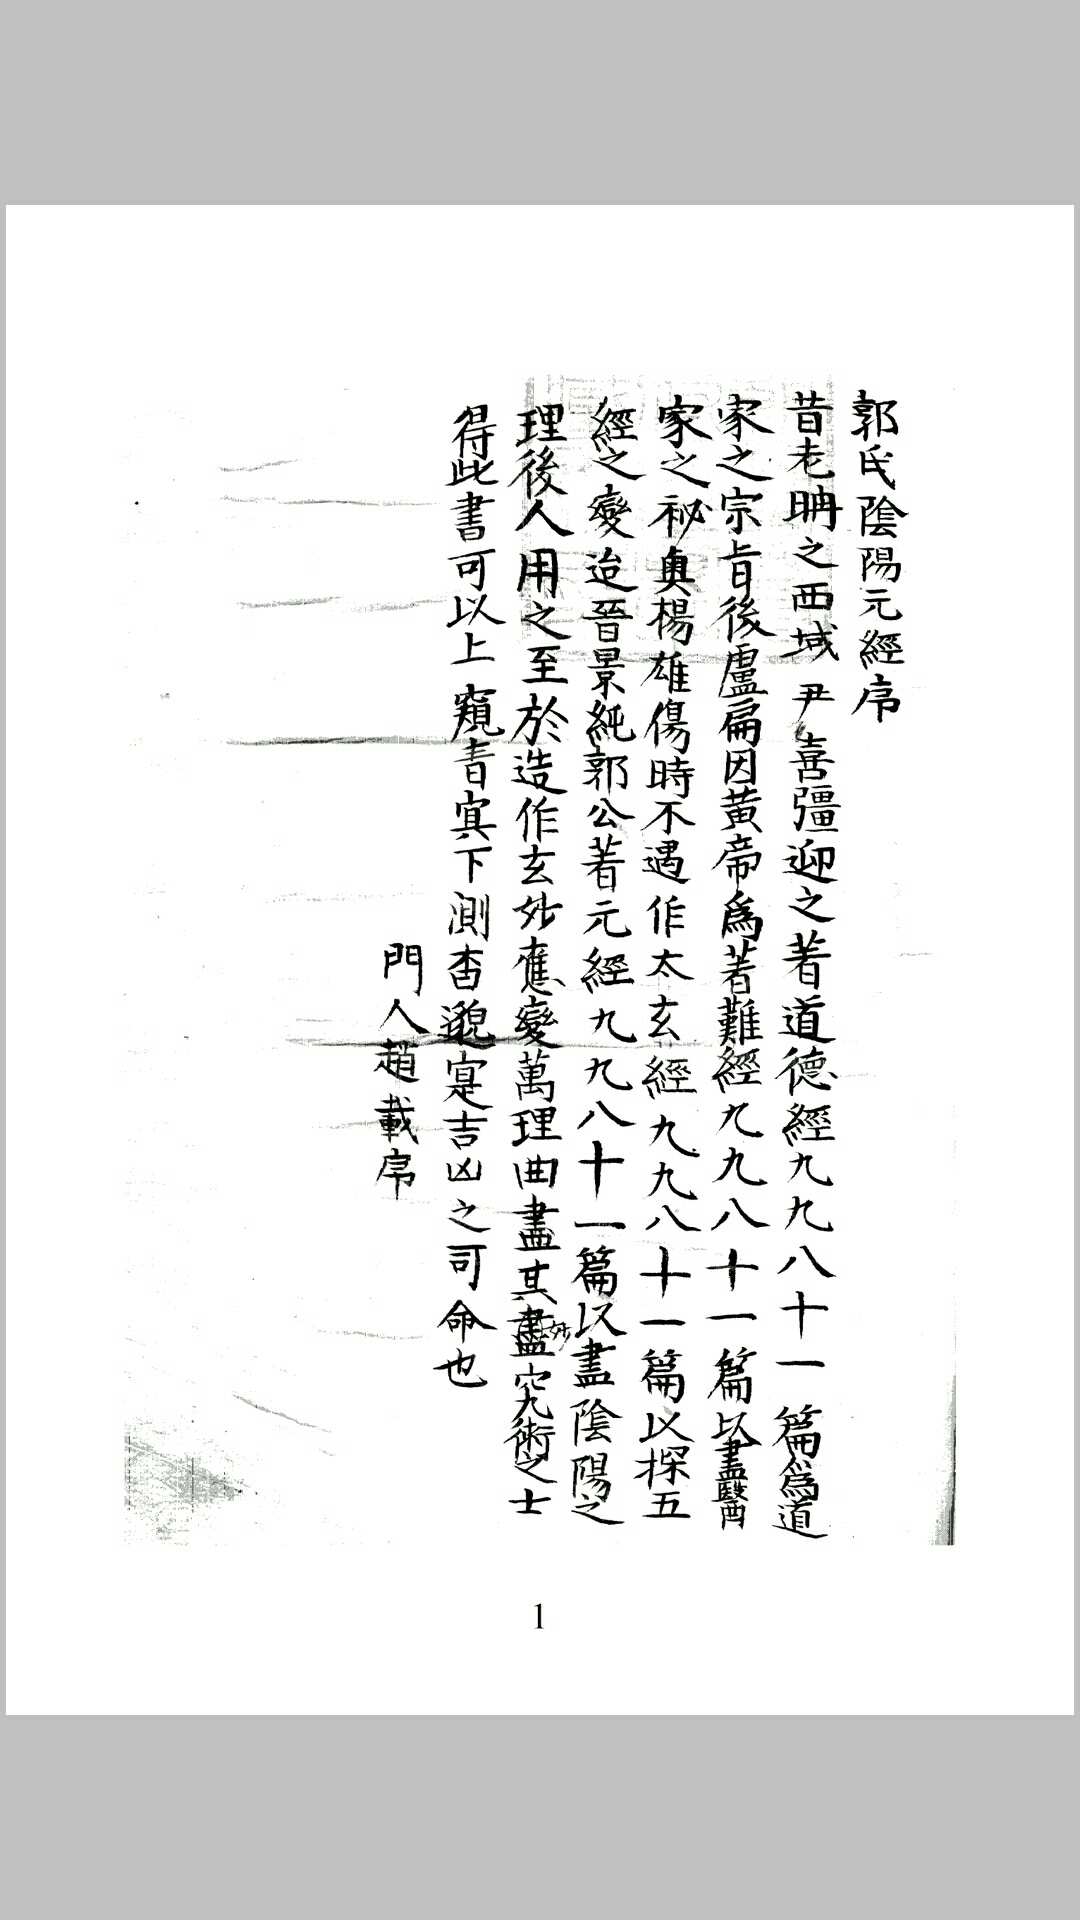 郭氏陰陽元經序
昔老聃之西域尹喜彊迎之著道德經九九八十一篇為道
家之宗旨後盧扁因黃帝為著難經九九八十一篇以盡醫
家之秘奧楊雄傷時不遇作太玄經九九八十一篇以探五
經之變迨晉景純郭公著元經九九八十一篇以盡陰陽之
理後人用之至於造作玄妙應變萬理曲盡其盡妙究術之士
得此書可以上窺青冥下測杳邈寔吉凶之司命也
門人趙載序
1